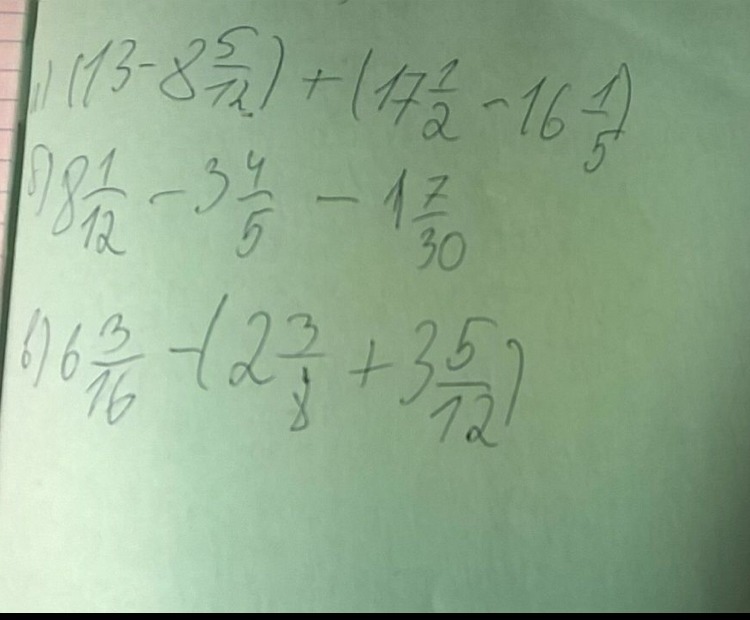 а) (13 - 8 5/12) + (17 1/2 - 16 1/5)
б) 8 1/12 - 3 4/5 - 1 7/30
в) 6 3/16 - (2 3/8 + 3 5/12)